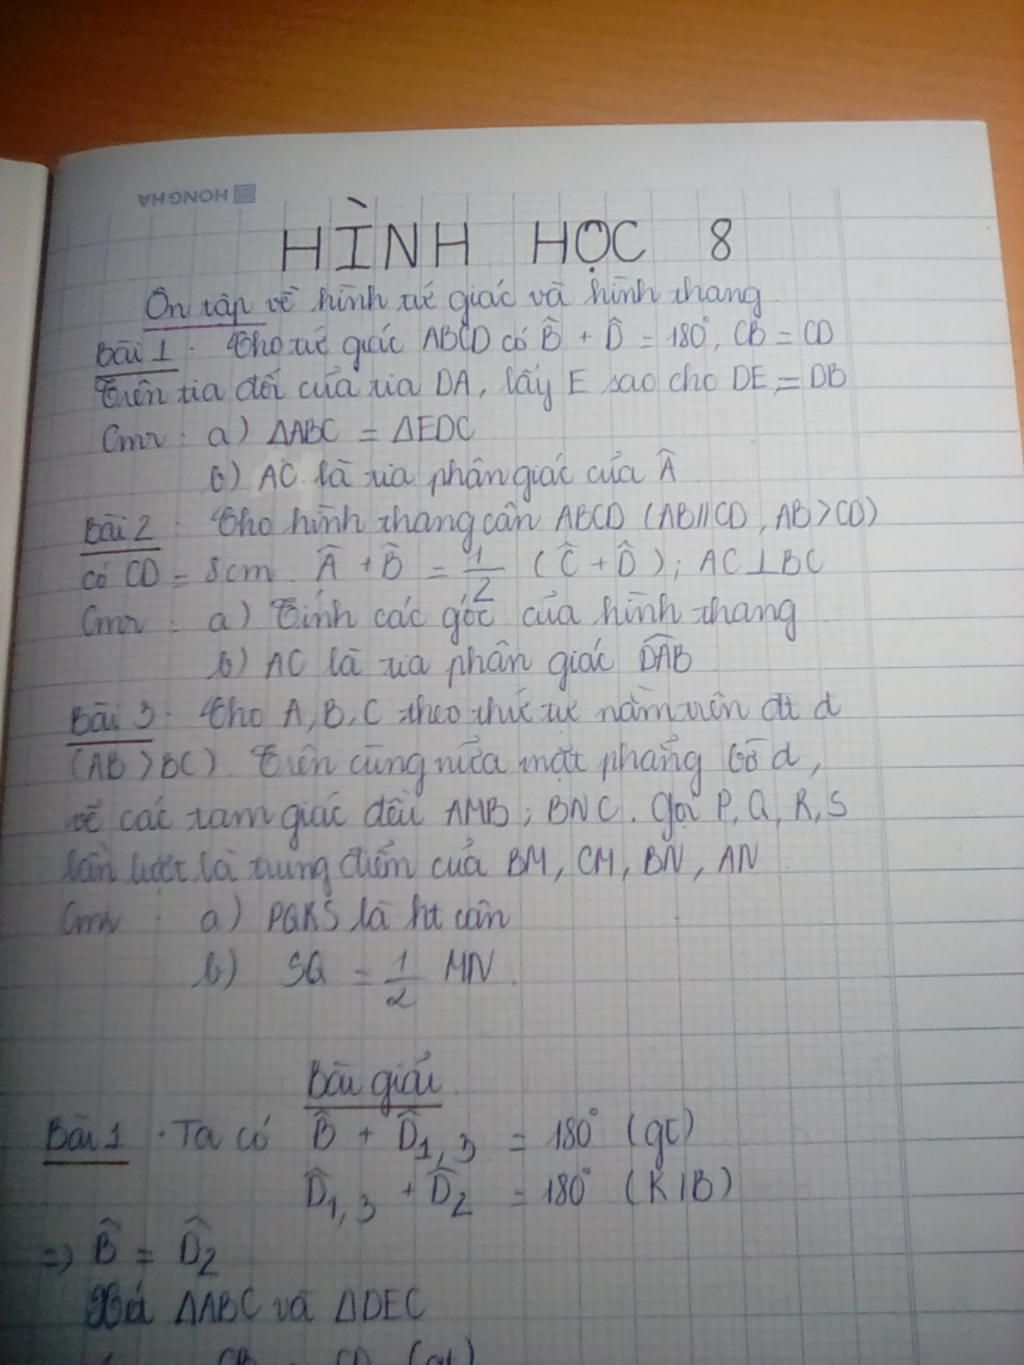 HONGHA
HÌNH HỌC 8
Ôn tập về hình tứ giác và hình thang
Bài 1 : Cho tứ giác ABCD có B̂ + D̂ = 180°, CB = CD
Trên tia đối của tia DA, lấy E sao cho DE = DB
Cmr : a) ΔABC = ΔEDC
b) AC là tia phân giác của Â
Bài 2 : Cho hình thang cân ABCD (AB//CD, AB>CD)
có CD = 8cm.  + B̂ = 1/2 (Ĉ + D̂); AC⊥BC
Cmr : a) Tính các góc của hình thang
b) AC là tia phân giác D̂AB
Bài 3 : Cho A, B, C theo thứ tự nằm trên đt d
(AB > BC). Trên cùng nửa mặt phẳng bờ d,
vẽ các tam giác đều AMB; BNC. Gọi P, Q, R, S
lần lượt là trung điểm của BM, CM, BN, AN
Cmr : a) PQRS là ht cân
b) SQ = 1/2 MN.
Bài giải
Bài 1 . Ta có B̂ + D̂1,3 = 180° (gt)
D̂1,3 + D̂2 = 180° (KIB)
=> B̂ = D̂2
Xét ΔABC và ΔDEC
CB = CD (gt)